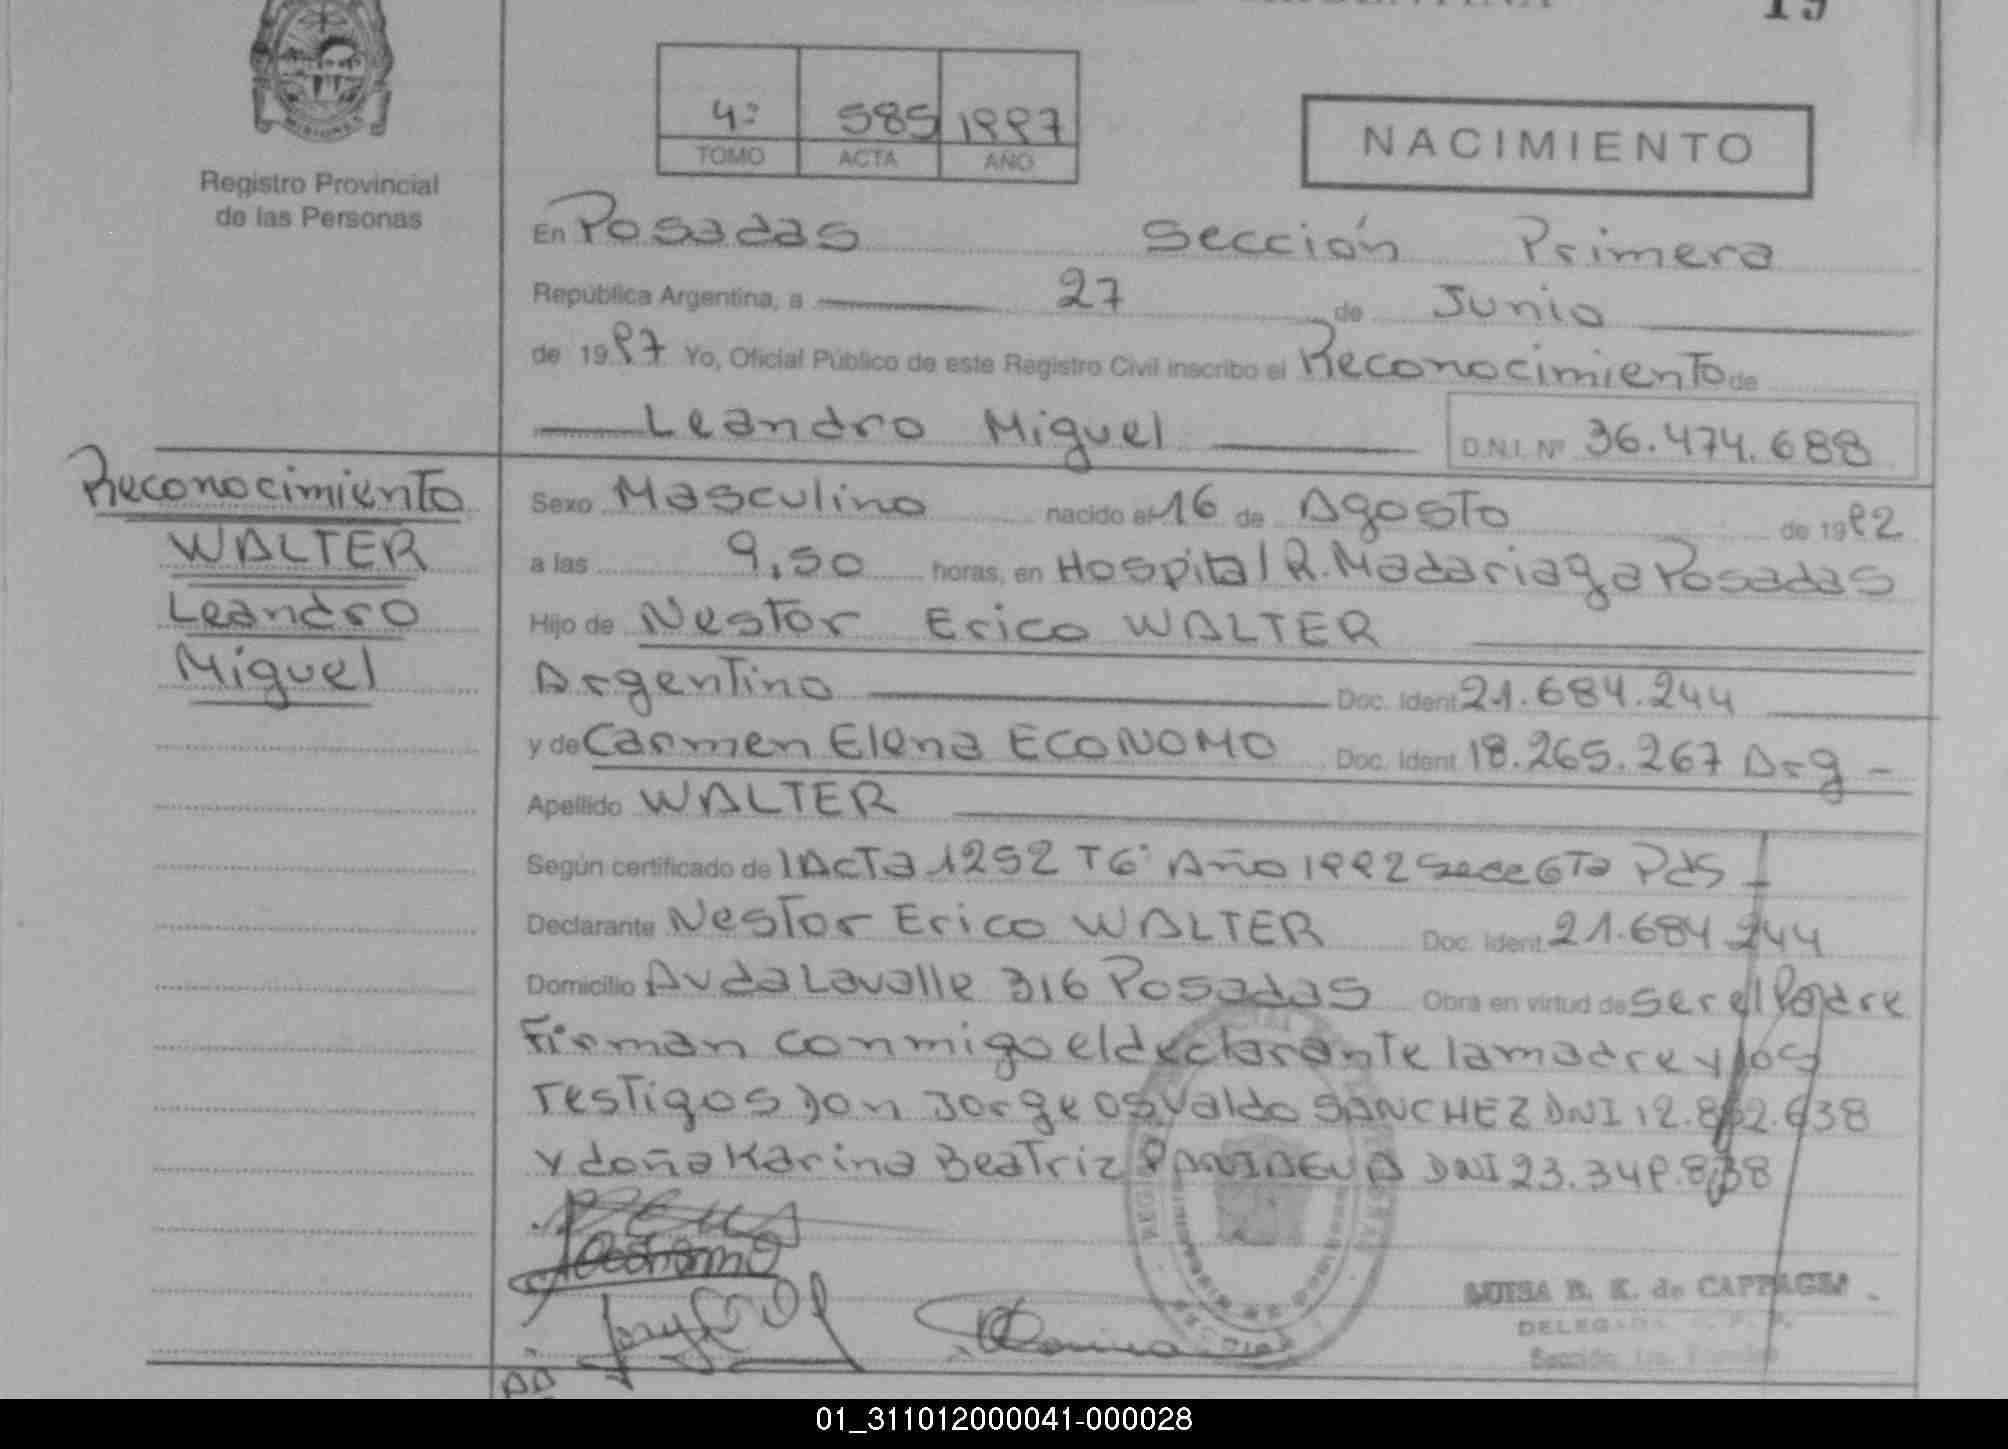 19
MISIONES
Registro Provincial
de las Personas
4º 585 1997
TOMO ACTA AÑO
NACIMIENTO
En Posadas Sección Primera
República Argentina, a 27 de Junio
de 1997 Yo, Oficial Público de este Registro Civil inscribo el Reconocimiento de
Leandro Miguel D.N.I. Nº 36.474.688
Reconocimiento
WALTER
Leandro
Miguel
Sexo Masculino nacido el 16 de Agosto de 1992
a las 9,50 horas, en Hospital R. Madariaga Posadas
Hijo de Nestor Erico WALTER
Argentino Doc. Ident 21.684.244
y de Carmen Elena ECONOMO Doc. Ident 18.265.267 Arg -
Apellido WALTER
Según certificado de Acta 1252 T6º Año 1992 Secc 6Ta Pds
Declarante Nestor Erico WALTER Doc. Ident. 21.684.244
Domicilio Avda Lavalle 316 Posadas Obra en virtud de ser el Padre
Firman conmigo el declarante la madre y los
Testigos Don Jorge Osvaldo SANCHEZ DNI 12.852.638
y doña Karina Beatriz PANIAGUA DNI 23.349.838
LUISA B. K. de
DELEGADA
Sección 1ra. Posadas
01_311012000041-000028